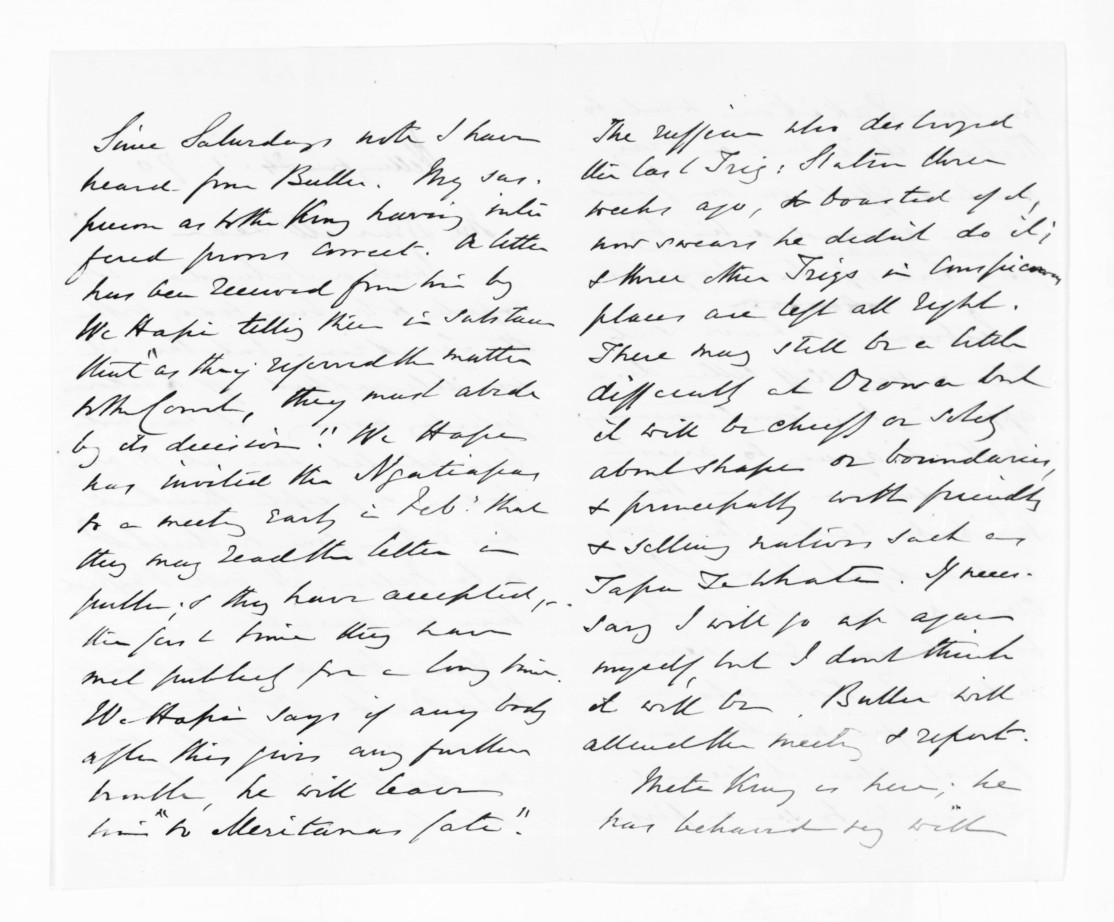 Since Saturdays note I have
heard from Buller. My sus-
picion as to the King having inter
fered proves correct. A letter
has been received from him by
We Hapi telling them in substance
that "as they referred the matter
to the Court, they must abide
by its decision". We Hapi
has invited the Ngatiapas
to a meeting early in Feb: that
they may read the letter in
public; & they have accepted,-
the first time they have
met publicly for a long time.
We Hapi says if any body
after this gives any further
trouble, he will leave
him "to Meritanas fate".
The ruffian who destroyed
the last Trig: Station three
weeks ago, & boasted of it,
now swears he didnt do it;
& three other Trigs in conspicuous
places are left all right.
There may still be a little
difficulty at Oroua but
it will be chiefly or solely
about shape or boundaries,
& principally with friendly
& selling natives such as
Tapa Te Whata. If neces-
sary I will go up again
myself, but I dont think
it will be. Buller will
attend the meeting & report.
Mete King is here; he
has behaved very well